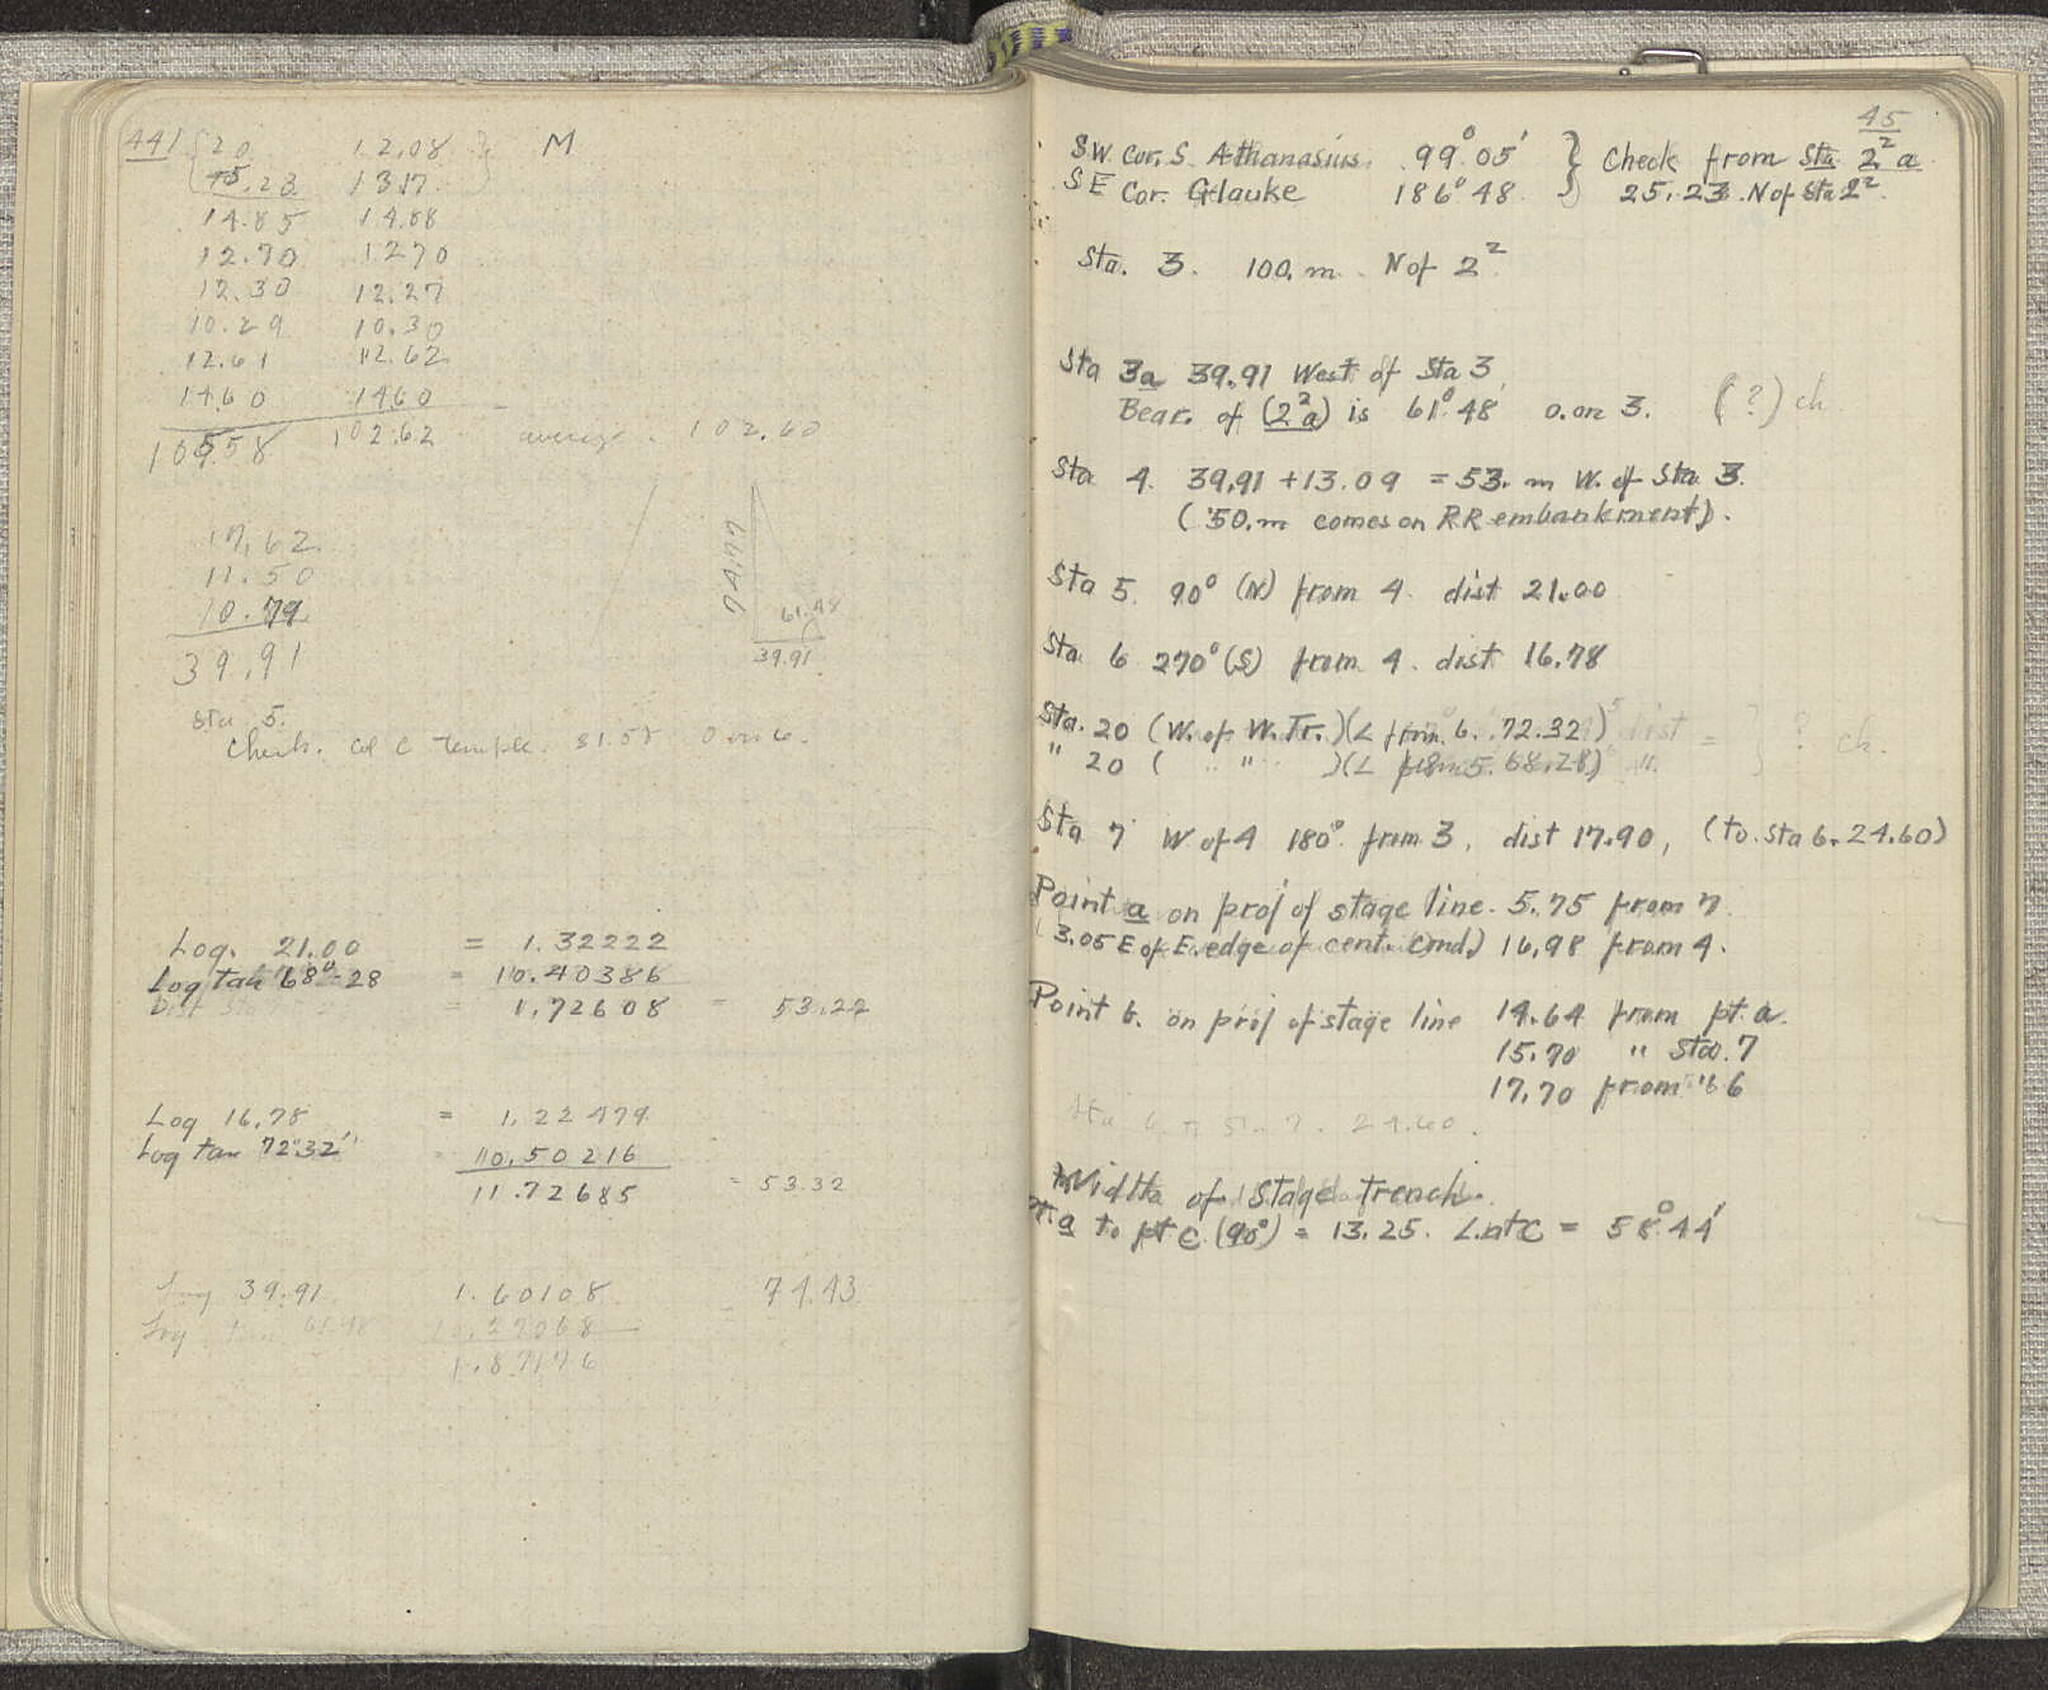 44
20 12.08 M
5.23 13.17
14.85 14.08
12.70 12.70
12.30 12.27
10.29 10.30
12.61 12.62
14.60 14.60
102.62 average. 102.60
17.62
11.50
10.79
39.91
61.48
39.91
Sta 5.
Check. Col C temple. 31.58 0 on 6.
Log. 21.00 = 1.32222
Log tan 68°-28 = 10.40386
= 1.72608 = 53.22
Log 16.78 = 1.22479
Log tan 72°32' 10.50216
11.72685 = 53.32
Log 39.91 1.60108 = 74.43
Log tan 61.48 10.27068
1.87176
45
SW. Cor. S. Athanasius. 99° 05' } Check from Sta 2²a
SE Cor. Glauke 186° 48 } 25.23 N of Sta 2².
Sta. 3. 100. m. N of 2²
Sta 3a 39.91 West of Sta 3,
Bear. of (2²a) is 61° 48 o. on 3. (?) ch.
Sta 4. 39.91 + 13.09 = 53. m W. of Sta 3.
(50. m comes on RR embankment).
Sta 5. 90° (N) from 4. dist 21.00
Sta 6 270° (S) from 4. dist 16.78
Sta. 20 (W. of W. Tr.) (∠ from 6. 72.32) dist = } ? ch.
" 20 ( " ) (∠ from 5. 68.28) "
Sta 7 W of 4 180° from 3, dist 17.90, (to Sta 6. 24.60)
Point a on proj of stage line. 5.75 from 7.
(3.05 E of E. edge of cent. Cond.) 16.98 from 4.
Point b. on proj of stage line 14.64 from pt. a.
15.70 " Sta. 7
17.70 from " 6
Sta 6 to St. 7. 24.60.
Width of Stage trench.
Pt. a to pt c (90°) = 13.25. ∠ at c = 58° 44'